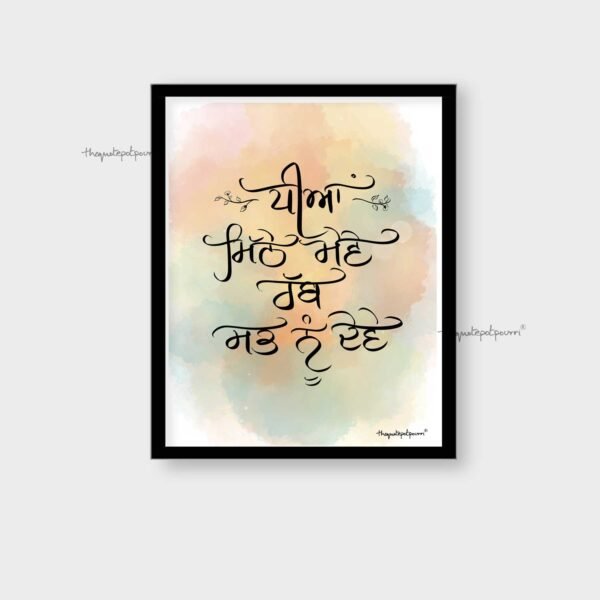 thequotepotpourri
ਧੀਆਂ
ਮਿੱਠੇ ਮੇਵੇ
ਰੱਬ
ਸਭ ਨੂੰ ਦੇਵੇ
thequotepotpourri®
thequotepotpourri®